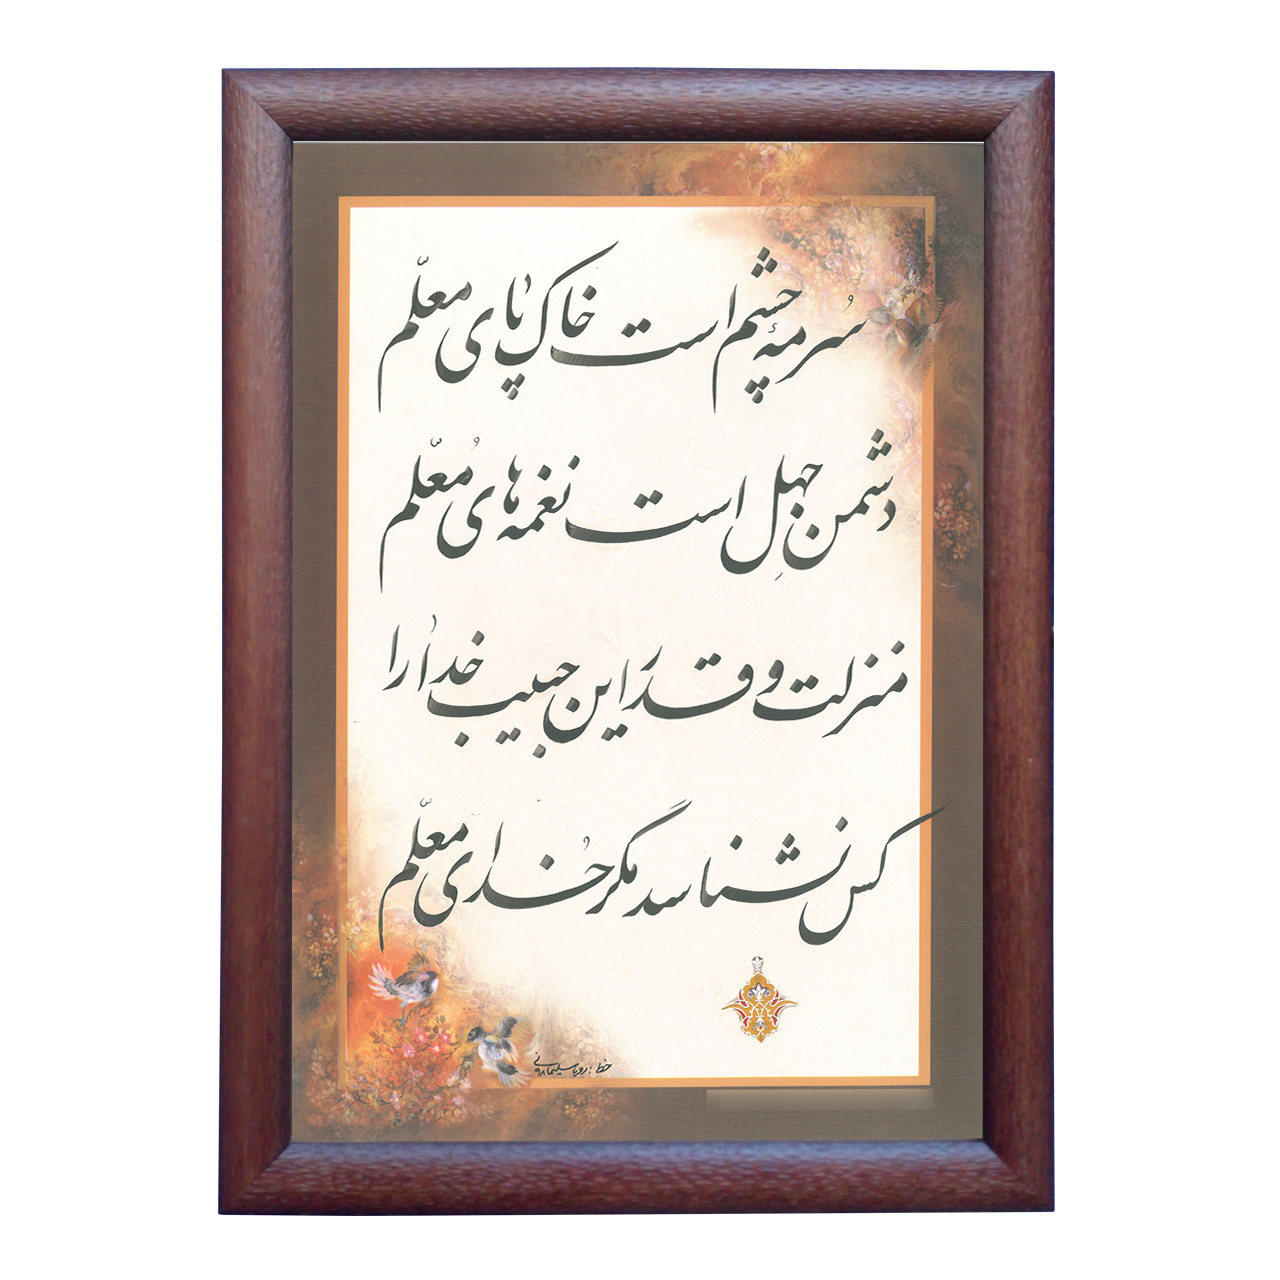 سُرمهٔ چشم است خاکِ پای معلّم
دشمن جهلِ است نغمه های مُعلّم
منزلت و قدر این حبیب خدا را
کس نشناسد مگر خُدای معلّم
خط : رویا سلیمانی ۹۸